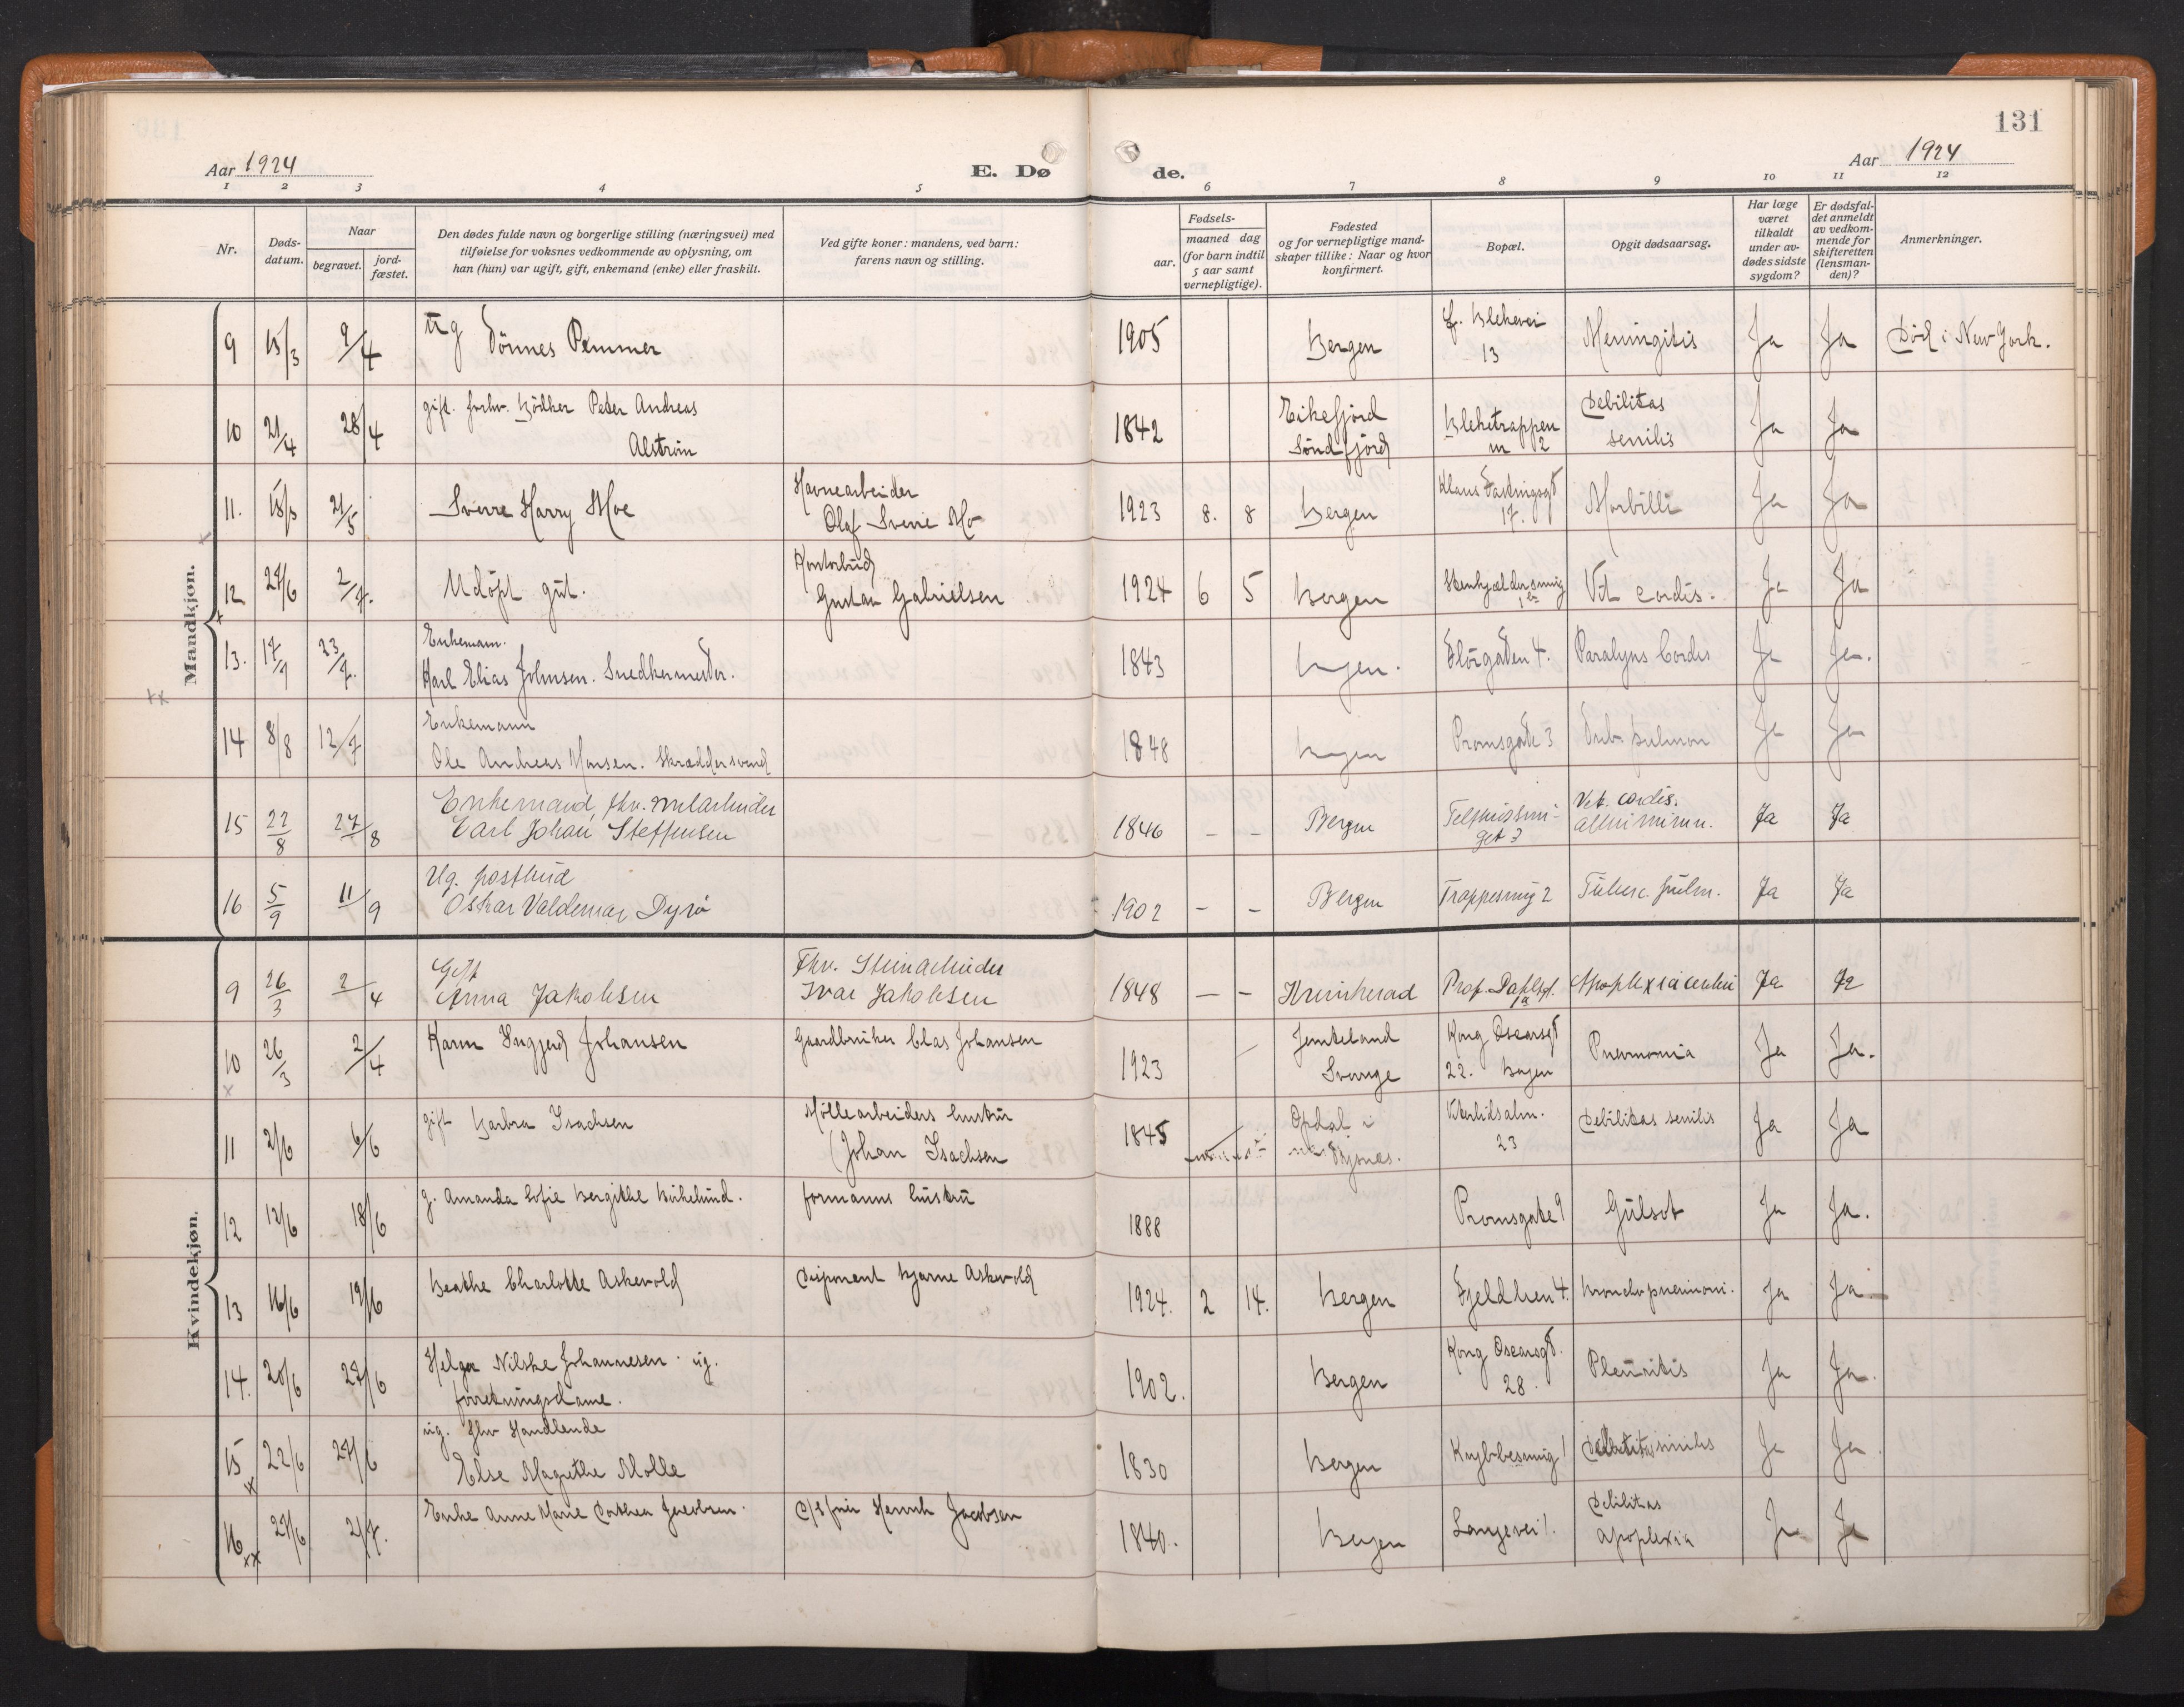 131
Aar 1924
E. Dø
de.
Aar 1924
1 2 3 4 5 6 7 8 9 10 11 12
Nr.
Døds-
datum.
Naar
begravet.
jord-
fæstet.
Den dødes fulde navn og borgerlige stilling (næringsvei) med
tilføielse for voksnes vedkommende av oplysning, om
han (hun) var ugift, gift, enkemand (enke) eller fraskilt.
Ved gifte koner: mandens, ved barn:
farens navn og stilling.
Fødsels-
aar.
maaned dag
(for barn indtil
5 aar samt
vernepligtige).
Fødested
og for vernepligtige mand-
skaper tillike: Naar og hvor
konfirmert.
Bopæl.
Opgit dødsaarsag.
Har læge
været
tilkaldt
under av-
dødes sidste
sygdom?
Er dødsfal-
det anmeldt
av vedkom-
mende for
skifteretten
(lensman-
den)?
Anmerkninger.
Mandkjøn.
9 15/3 9/4 ug
Tönnes Pemmer 1905 Bergen 13 Meningitis Ja Ja Död i New York.
10 21/4 28/4 gift. forhv. Bödker Peter Andreas
Alström 1842 Eikefjord
Söndfjord Blekstrappen
2 Debilitas
senilis Ja Ja
11. 15/5 21/5 Sverre Harry Moe Havnearbeider
Olaf Sverre Mo 1923 8. 8 Bergen Klaus
17. Morbilli Ja Ja
12 27/6 2/7. Udöpt gut. Kontorbud
Gustav Gabrielsen 1924 6 5 Bergen Vit. cordis. Ja Ja
13. 17/7 23/7. Enkemann.
Karl Elias Johnsen. Snedkermester. 1843 Bergen. 4. Paralysis Cordis Ja Ja.
14 8/8 12/7 Enkemann
Ole Andreas Monsen. Skräddersvend 1848 Bergen Promsgate 3 Tub. pulmon Ja Ja
15 22/8 27/8 Enkemand, fhv.
Carl Johan Steffensen 1846 – – Bergen
3 Vit. cordis.
Ja Ja
16 5/9 11/9 Ug. postbud
Oskar Valdemar Dyrö 1902 – – Bergen Trappesmug 2 Tuberc. pulm. Ja Ja
Kvindekjøn.
9 26/3 2/4 Gift
Anna Jakobsen Fhv. Stenarbeider
Ivar Jakobsen 1848 – – Kvinherad Prof. Dahlsgt.
Apoplexia cerebri Ja Ja
10 26/3 2/4 Karin Ingjerd Johansen Gaardbruker Clas Johansen 1923 – Jemteland
Sverige Kong Oscarsgt
22. Bergen Pneumonia Ja Ja.
11 2/6 6/6 gift Barbra Isachsen Möllearbeiders hustru
(Johan Isachsen 1845 Opdal i
23 Debilitas senilis Ja Ja
12 12/6 18/6 g. Amanda Sofie Bergithe Birkelund. formanns hustru 1888 Promsgate 9 Gulsot Ja Ja.
13 16/6 19/6 Beathe Charlotte Askevold Disponent Bjarne Askevold 1924. 2 14. Bergen Fjeldlien 4. Bronchopneumoni. Ja Ja
14. 20/6 27/6 Helga Nilske Johannesen. ug.
forretningsdame. 1902. Bergen Kong Oscarsgt.
28. Pleuritis Ja Ja.
15 22/6 27/6 ug. fhv Handlende
Else Magrethe Molle 1830 Bergen Debilitas senilis Ja Ja.
16 27/6 2/7. Enke Anne Marie Dorthea Jacobsen. Henrik Jacobsen 1840. Bergen Langevei 1. Debilitas
apoplexia Ja Ja